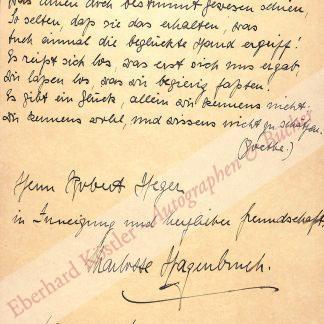 was ihnen doch bestimmt gewesen schien,
So selten, daß sie das erhalten, was
auch einmal die beglückte Hand ergriff!
Es reißt sich los, was erst sich uns ergab
wir lassen los was wir begierig faßten.
Es gibt ein Glück, allein wir kennens nicht:
wir kennens wohl, und wissens nicht zu schätzen.
(Goethe.)
Herrn Robert Heger
in Zuneigung und herzlicher Freundschaft.
Charlotte Hagenbruch.
Eberhard Köstler Autographen & Bücher